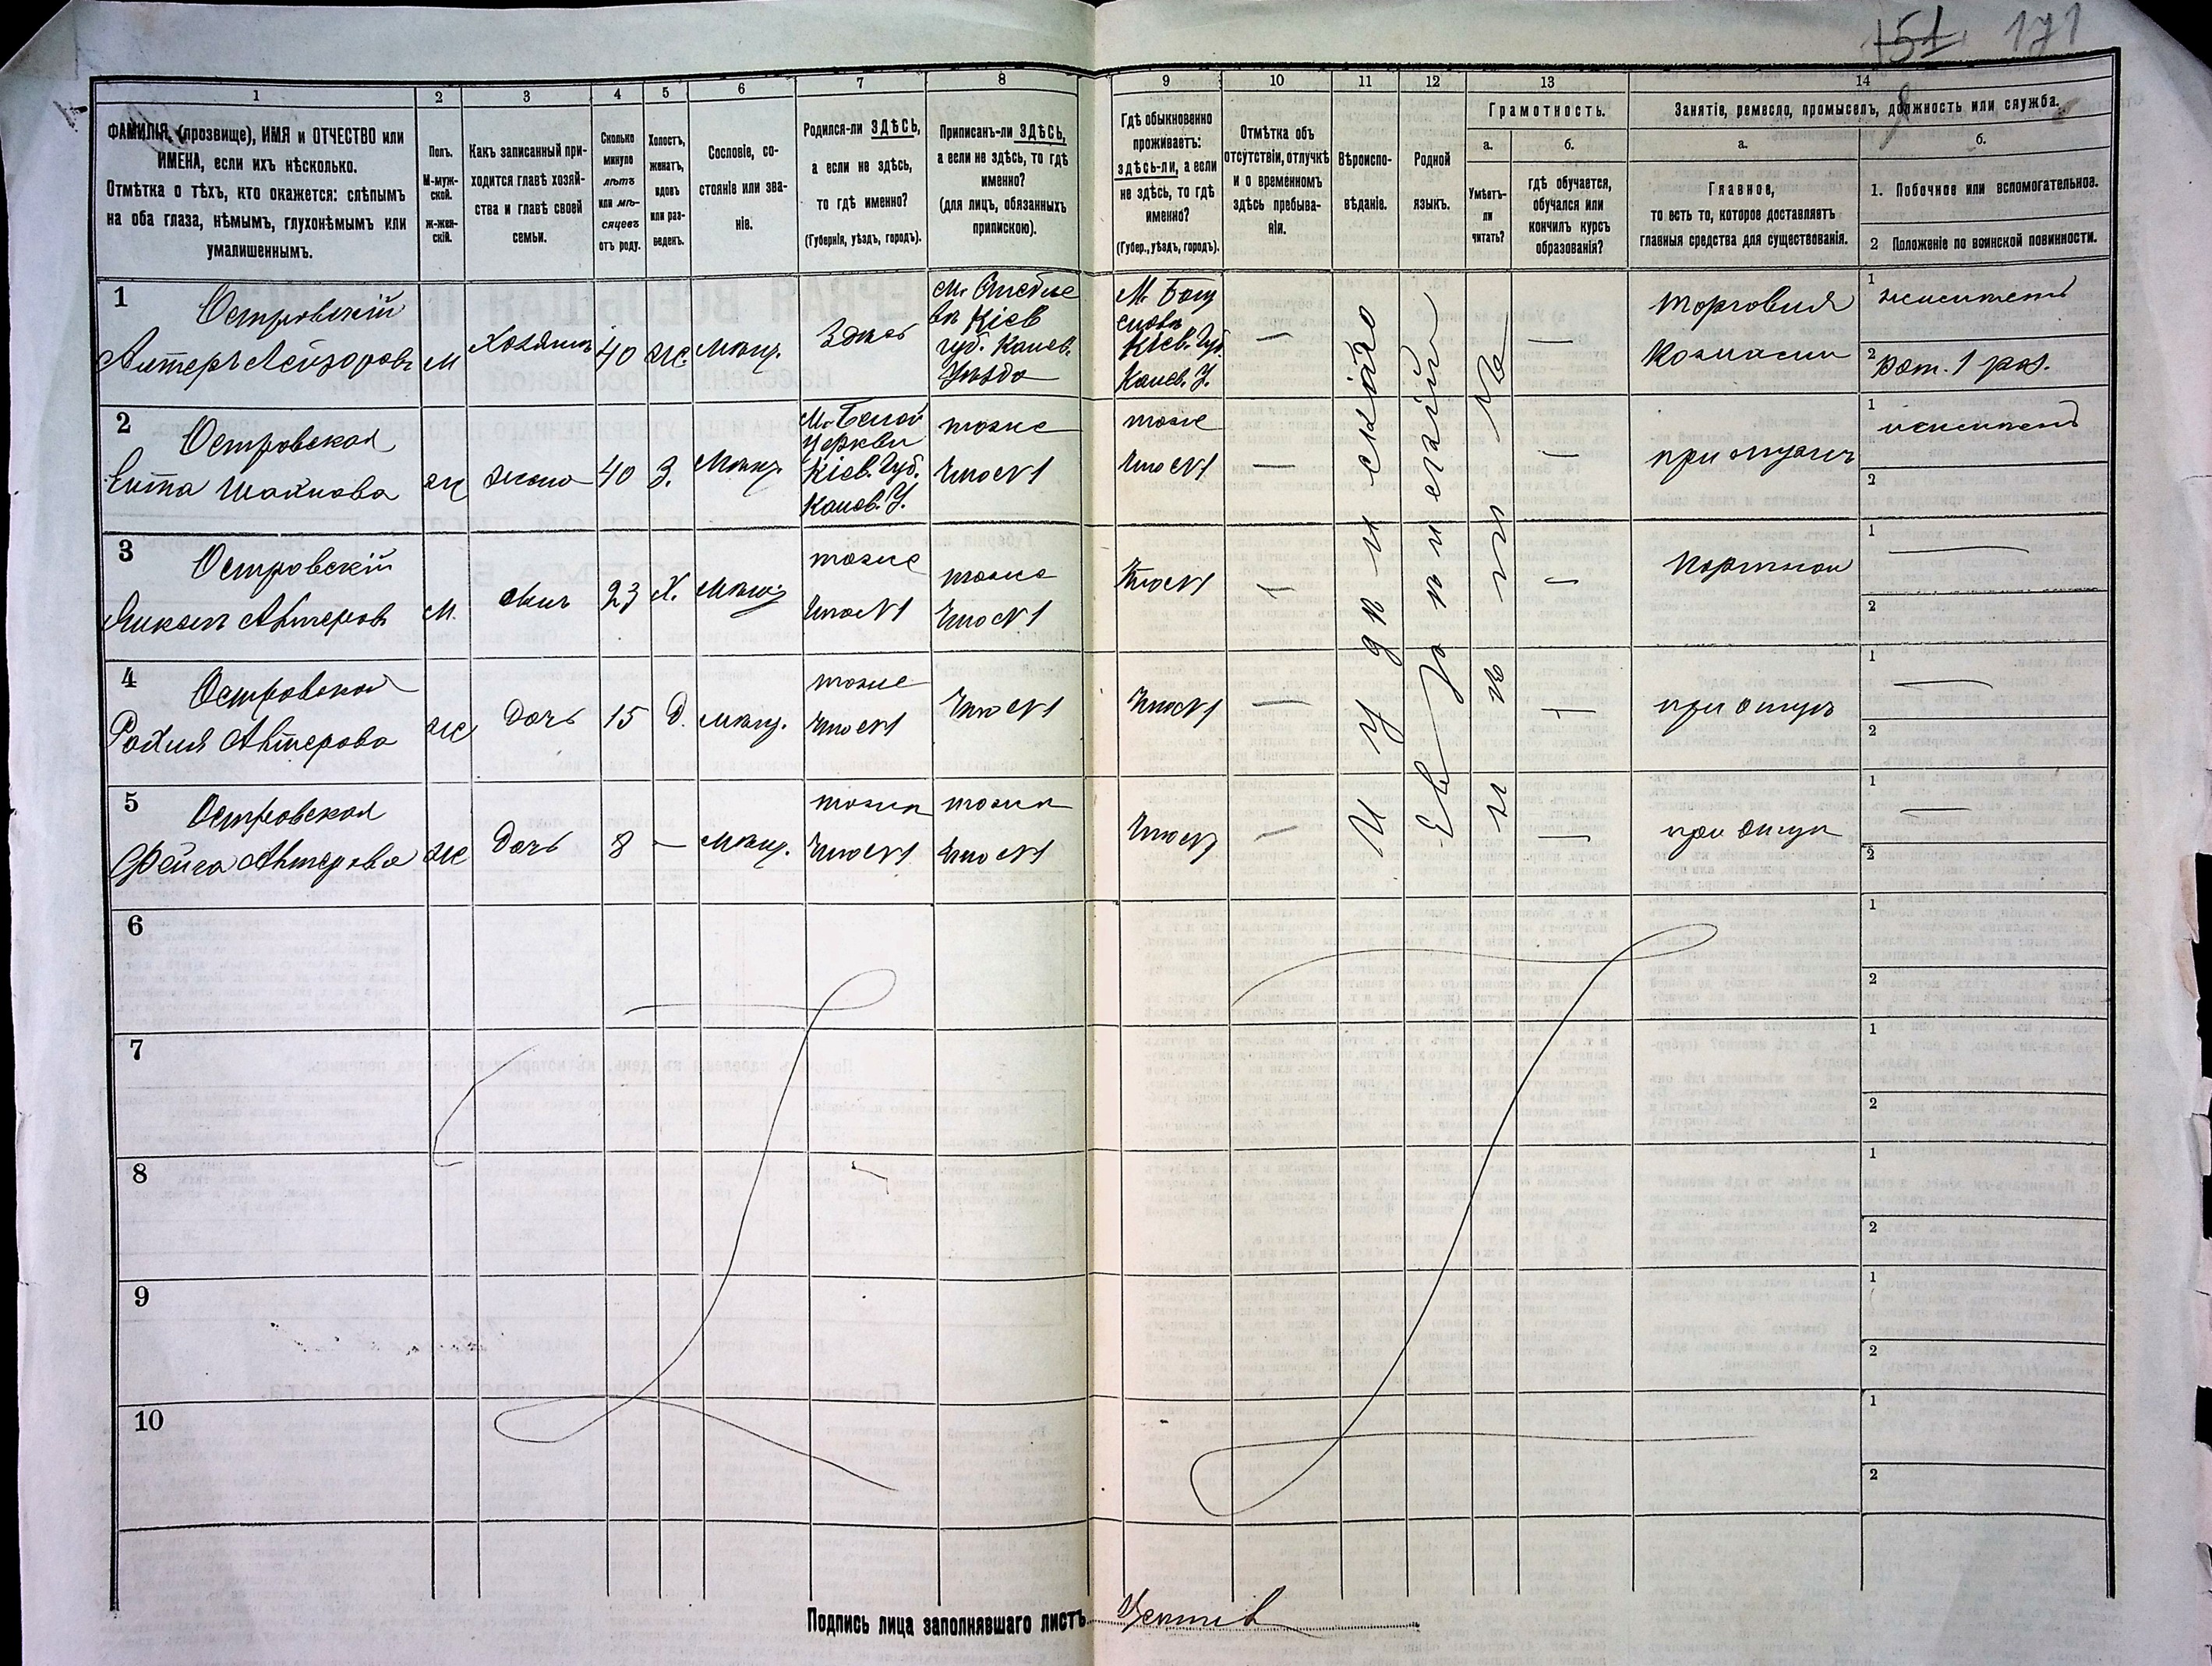 151 171
1 2 3 4 5 6 7 8 9 10 11 12 13 14
ФАМИЛІЯ, (прозвище), ИМЯ и ОТЧЕСТВО или
ИМЕНА, если ихъ нѣсколько.
Отмѣтка о тѣхъ, кто окажется: слѣпымъ
на оба глаза, нѣмымъ, глухонѣмымъ или
умалишеннымъ.
Полъ.
М-муж-
ской.
ж-жен-
скій.
Какъ записанный при-
ходится главѣ хозяй-
ства и главѣ своей
семьи.
Сколько
минуло
лѣтъ
или мѣ-
сяцевъ
отъ роду.
Холостъ,
женатъ,
вдовъ
или раз-
веденъ.
Сословіе, со-
стояніе или зва-
ніе.
Родился-ли ЗДѢСЬ,
а если не здѣсь,
то гдѣ именно?
(Губернія, уѣздъ, городъ).
Приписанъ-ли ЗДѢСЬ,
а если не здѣсь, то гдѣ
именно?
(для лицъ, обязанныхъ
припискою).
Гдѣ обыкновенно
проживаетъ:
здѣсь-ли, а если
не здѣсь, то гдѣ
именно?
(Губер., уѣздъ, городъ).
Отмѣтка объ
отсутствіи, отлучкѣ
и о временномъ
здѣсь пребыва-
ніи.
Вѣроиспо-
вѣданіе.
Родной
языкъ.
Грамотность.
а.
Умѣетъ-
ли
читать?
б.
гдѣ обучается,
обучался или
кончилъ курсъ
образованія?
Занятіе, ремесло, промыселъ, должность или служба.
а.
Главное,
то есть то, которое доставляетъ
главныя средства для существованія.
б.
1. Побочное или вспомогательное.
2 Положеніе по воинской повинности.
1
Островскій
М
Хозяинъ
40
Ж
мѣщ.
Здѣсь
Кіев
губ. Канев.
Уѣзда
М. Богу
славъ
Кіев. Губ.
Канев. У.
—
—
Торговля
1
2 рат. 1 раз.
2
Островская
ж
жена
40
З.
Мѣщ.
М. Белой
Церкви
Кіев. Губ.
Канев. У.
тоже
что №1
тоже
что №1
—
—
при мужѣ
1
2
3
Островскій
М.
сынъ
23
Х.
Мѣщ
тоже
что №1
тоже
что №1
что №1
—
—
Портной
1 —
2
4
Островская
ж
Дочь
15
Д.
мѣщ.
тоже
что №1
что №1
что №1
—
—
при отцѣ
1 —
2
5
Островская
Фейга
ж
Дочь
8
—
мѣщ.
тоже
что №1
тоже
что №1
что №1
—
—
при отцѣ
1 —
2
Иудейского
6
1
2
7
1
2
8
1
2
9
1
2
10
1
2
Подпись лица заполнявшаго листъ